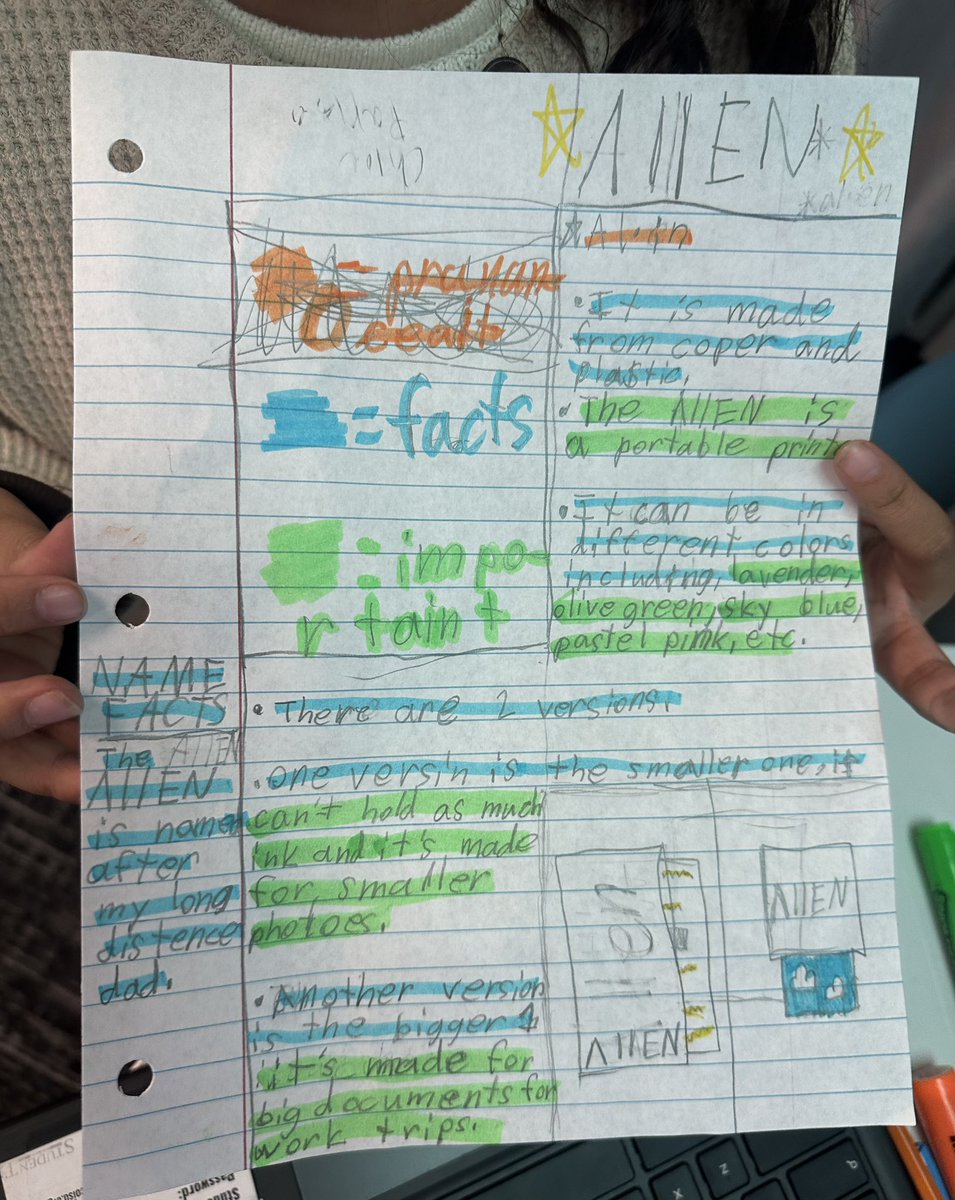 AllEN*
*alien
Alien
= facts
= impo-
rtaint
• It is made
from coper and
plastic.
• The AllEN is
a portable
• It can be in
different colors
including, lavender,
olive green, sky blue,
pastel pink, etc.
NAME
FACTS
The AllEN
AllEN
is named
after
my long
distence
dad.
• There are 2 versions.
• One versin is the smaller one, it
can't hold as much
ink and it's made
for smaller
photoes.
• Another version
is the bigger 1
it's made for
big documents for
work trips.
AllEN
AllEN
STUDENT
Password:
Stude
Z
X